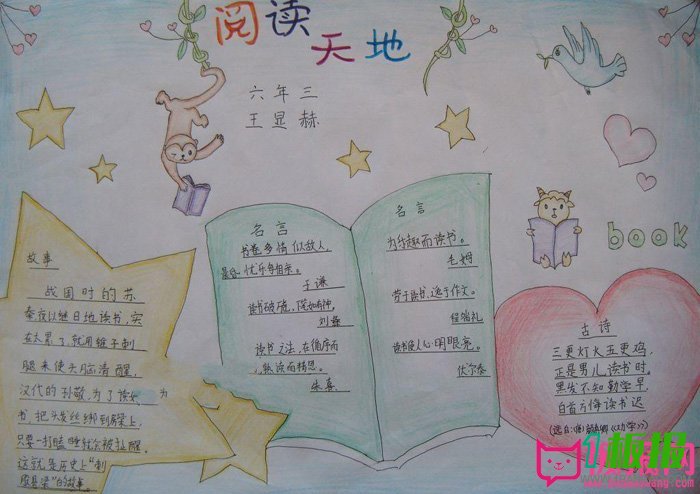 阅读天地
六年三
王显赫
故事
战国时的苏
秦夜以继日地读书,实
在太累了,就用锥子刺
腿来使头脑清醒,
汉代的孙敬为了读 为
书,把头发丝绑到梁上,
只要一打瞌睡就会被扯醒。
这就是历史上"刺
悬梁"的故事
名言
书卷多情似故人,
晨昏忧乐每相亲。
于谦
读书破 ,
读书之法,在循序而
,熟读而精思。
朱熹
名言
为乐趣而读书。
毛姆
劳于读书,逸于作文。
程端礼
读书使人心明眼亮。
伏尔泰
book
古诗
三更灯火五更鸡,
正是男儿读书时。
黑发不知勤学早,
白首方悔读书迟
板报网